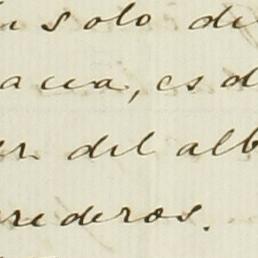 n solo de
acea, es d
er del alb
rrederos.